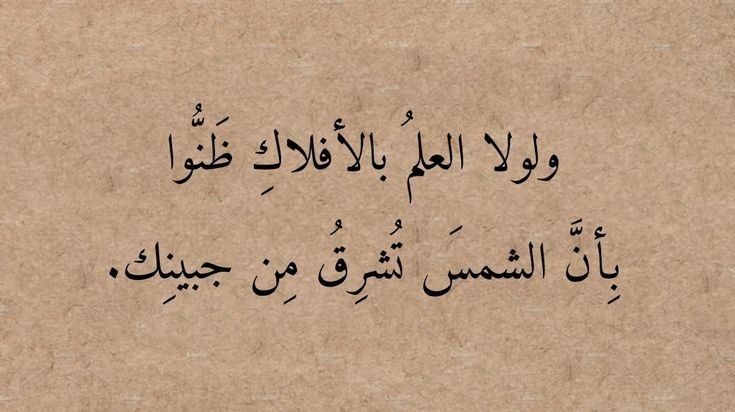 ولولا العلمُ بالأفلاكِ ظَنُّوا
بِأنَّ الشمسَ تُشرِقُ مِن جبينِك.